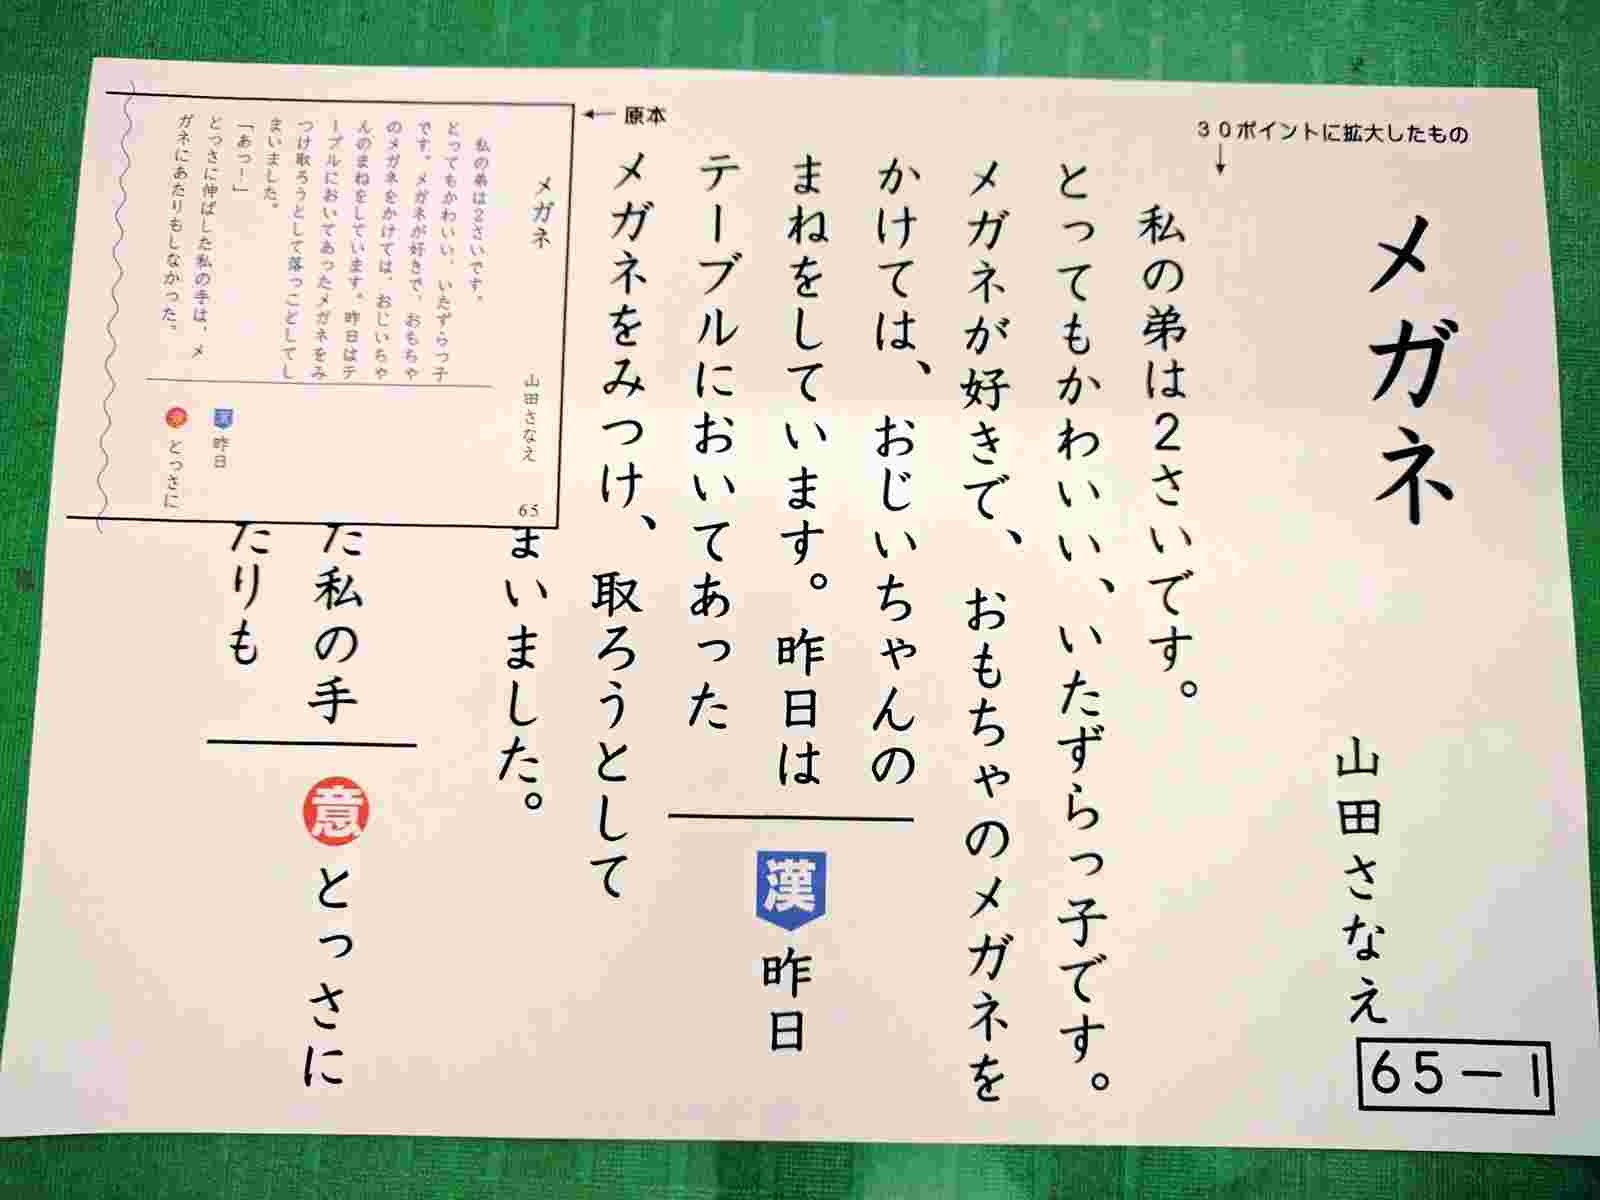 30ポイントに拡大したもの
メガネ
山田さなえ
65-1
私の弟は2さいです。
とってもかわいい、いたずらっ子です。
メガネが好きで、おもちゃのメガネを
かけては、おじいちゃんの
まねをしています。昨日は
テーブルにおいてあった
メガネをみつけ、取ろうとして
まいました。
た私の手
たりも
漢 昨日
意 とっさに
原本
メガネ
山田さなえ
65
私の弟は2さいです。
とってもかわいい、いたずらっ子
です。メガネが好きで、おもちゃ
のメガネをかけては、おじいちゃ
んのまねをしています。昨日はテ
ーブルにおいてあったメガネをみ
つけ取ろうとして落っことしてし
まいました。
「あっ!」
とっさに伸ばした私の手は、メ
ガネにあたりもしなかった。
漢 昨日
意 とっさに